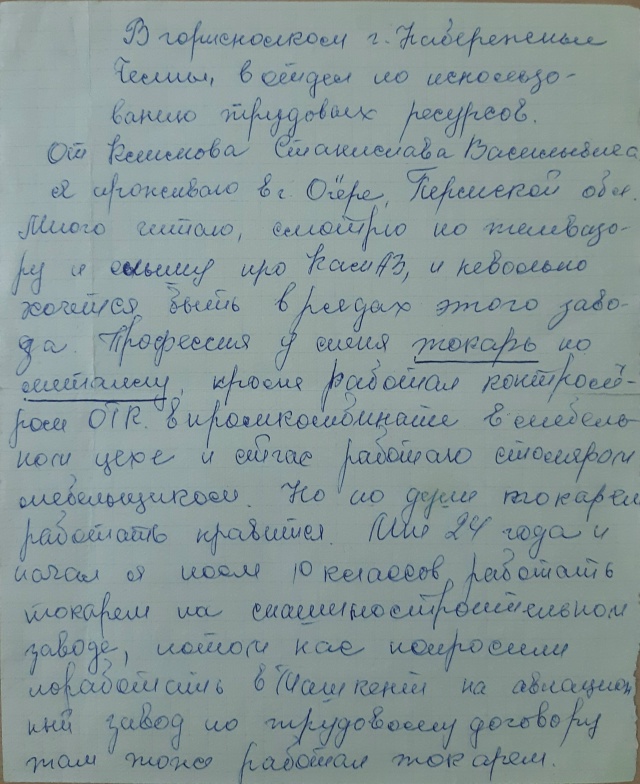 В горисполком г. Набережные
Челны, в отдел по использо-
ванию трудовых ресурсов.
От Климова Станислава Васильевича
Я проживаю в г. Очёре, Пермской обл.
Много читаю, смотрю по телевизо-
ру и слышу про КамАЗ, и невольно
хочется быть в рядах этого заво-
да. Профессия у меня токарь по
металлу, кроме работал контролё-
ром ОТК. в промкомбинате в мебель-
ном цехе и сейчас работаю столяром
мебельщиком. Но по душе токарем
работать нравится. Мне 24 года и
начал я после 10 классов работать
токарем на машиностроительном
заводе, потом нас попросили
поработать в Ташкент на авиацион
ный завод по трудовому договору
там тоже работал токарем.